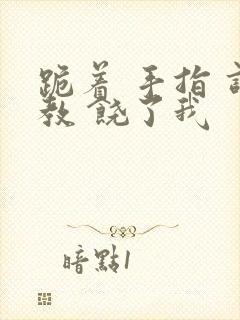 跪着 手指 
教 饶了我
暗點1